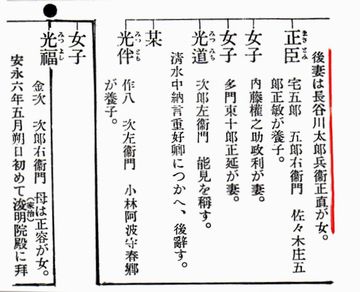 後妻は長谷川太郎兵衞正直が女。
正臣 まさとみ
宅五郎 五郎右衞門 佐々木庄五
郎正敏が養子。
女子
内藤權之助政利が妻。
女子
多門東十郎正延が妻。
光道 みつみち
次郎左衞門 能見を稱す。
淸水中納言重好卿につかへ、後辭す。
某
光伴 みつとも
作八 次左衞門 小林阿波守春郷
が養子。
女子
光福 みつよし
金次 次郎右衞門 母は正容が女。
安永六年五月朔日初めて浚明院殿(家治)に拜